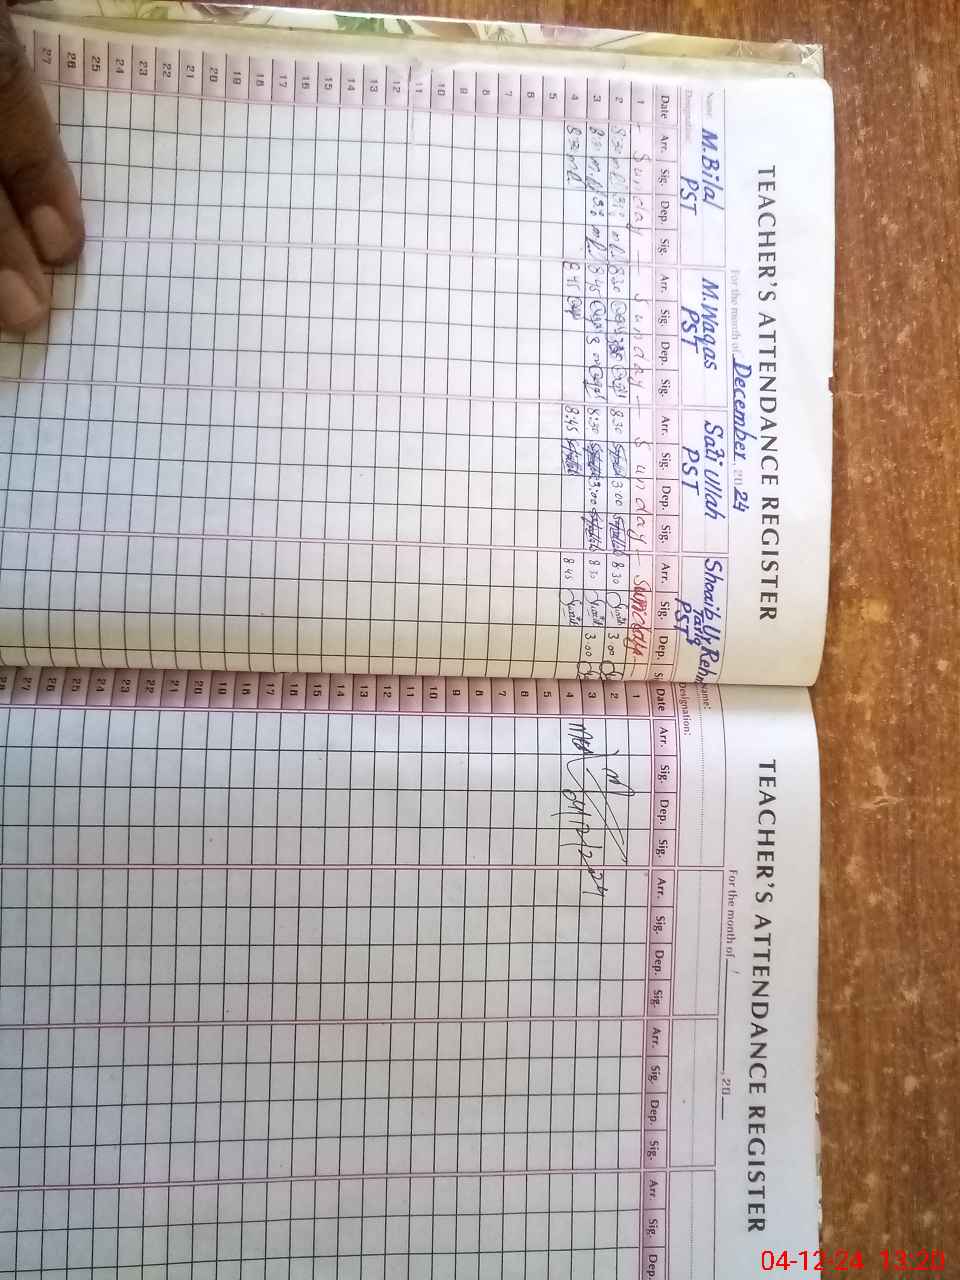 TEACHER'S ATTENDANCE REGISTER
For the month of December, 2024
Name: M. Bilal M. Waqas Safi Ullah Shoaib Ur Rehm
Tariq
Designation: PST PST PST PST
Date Arr. Sig. Dep. Sig. Arr. Sig. Dep. Sig. Arr. Sig. Dep. Sig. Arr. Sig. Dep. Si
1 - Sunday - Sunday - Sunday - Sunday -
2 8:30 8:30 8:30 3:00 8:30 3:00
3 8:30 8:45 8:30 3:00 8:30 3:00
4 8:30 8:45 8:45 8:45
5
6
7
8
9
10
11
12
13
14
15
16
17
18
19
20
21
22
23
24
25
26
27
TEACHER'S ATTENDANCE REGISTER
For the month of , 20
Name:
Designation:
Date Arr. Sig. Dep. Sig. Arr. Sig. Dep. Sig. Arr. Sig. Dep. Sig. Arr. Sig. Dep.
1
2
3
4 04/12/2024
5
6
7
8
9
10
11
12
13
14
15
16
17
18
19
20
21
22
23
24
25
26
27
28
04-12-24 13:20